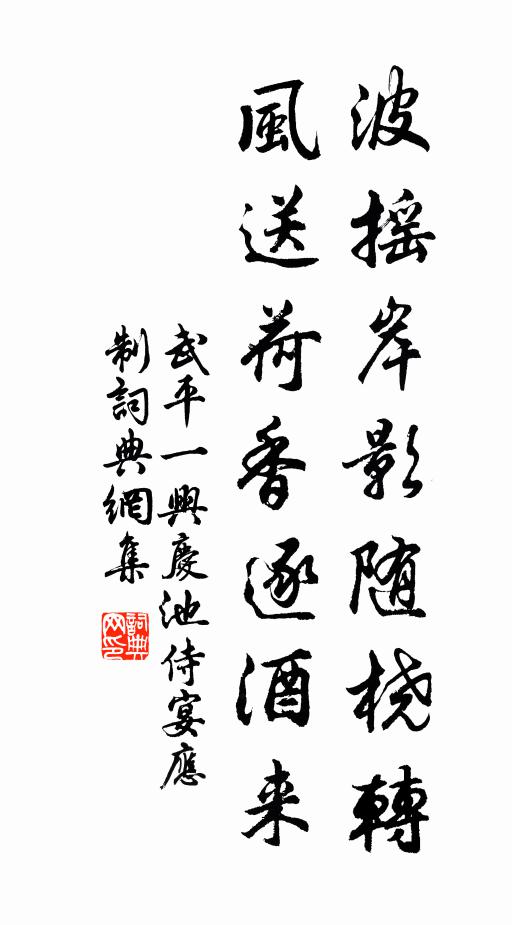 波摇岸影随桡轉
風送荷香逐酒来
武平一興慶池侍宴應
制詞典網集
詞典网印